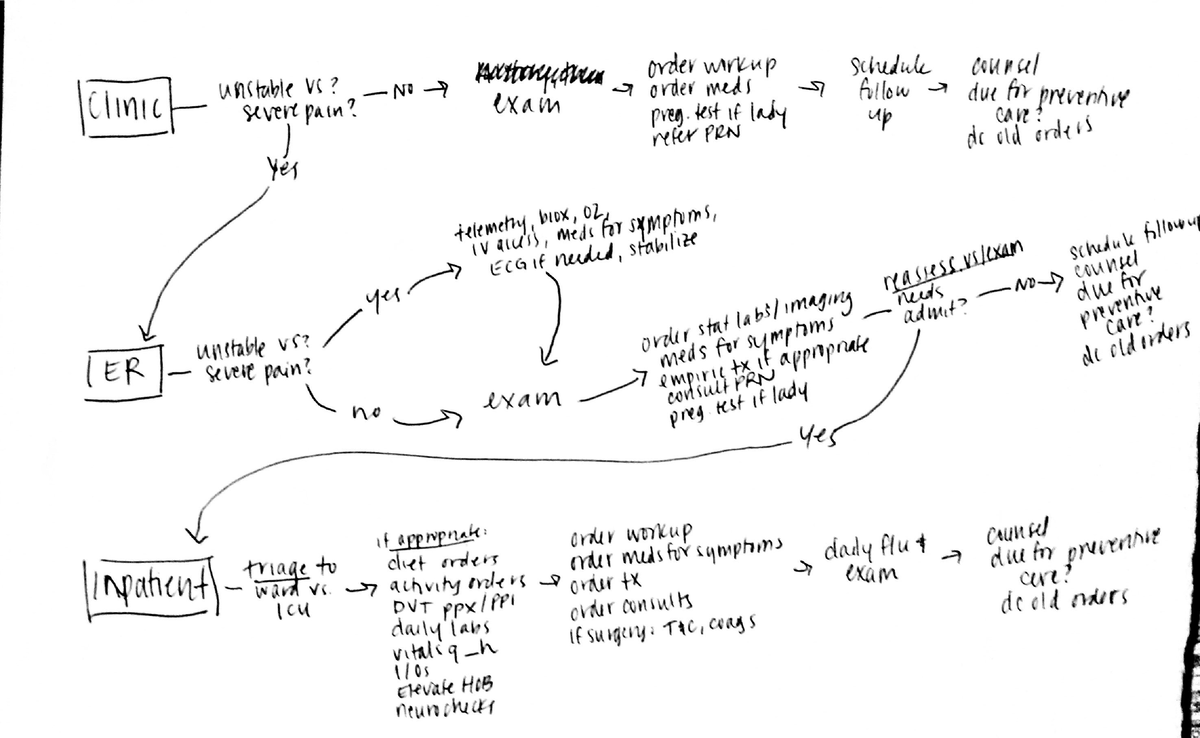 Clinic
unstable vs?
severe pain?
NO
exam
order workup
order meds
preg. test if lady
refer PRN
schedule
follow
up
counsel
due for preventive
care?
dc old orders
yes
ER
unstable vs?
severe pain?
yes
telemetry, biox, O2,
IV access, meds for symptoms,
ECG if needed, stabilize
no
exam
order stat labs/imaging
meds for symptoms
empiric tx if appropriate
consult PRN
preg. test if lady
reassess vs/exam
needs
admit?
NO
schedule follow up
counsel
due for
preventive
care?
dc old orders
yes
Inpatient
triage to
ward vs.
ICU
if appropriate:
diet orders
activity orders
DVT ppx/PPI
daily labs
vitals q_h
I/Os
Elevate HOB
neurochecks
order workup
order meds for symptoms
order tx
order consults
if surgery: T&C, coags
daily f/u &
exam
counsel
due for preventive
care?
dc old orders